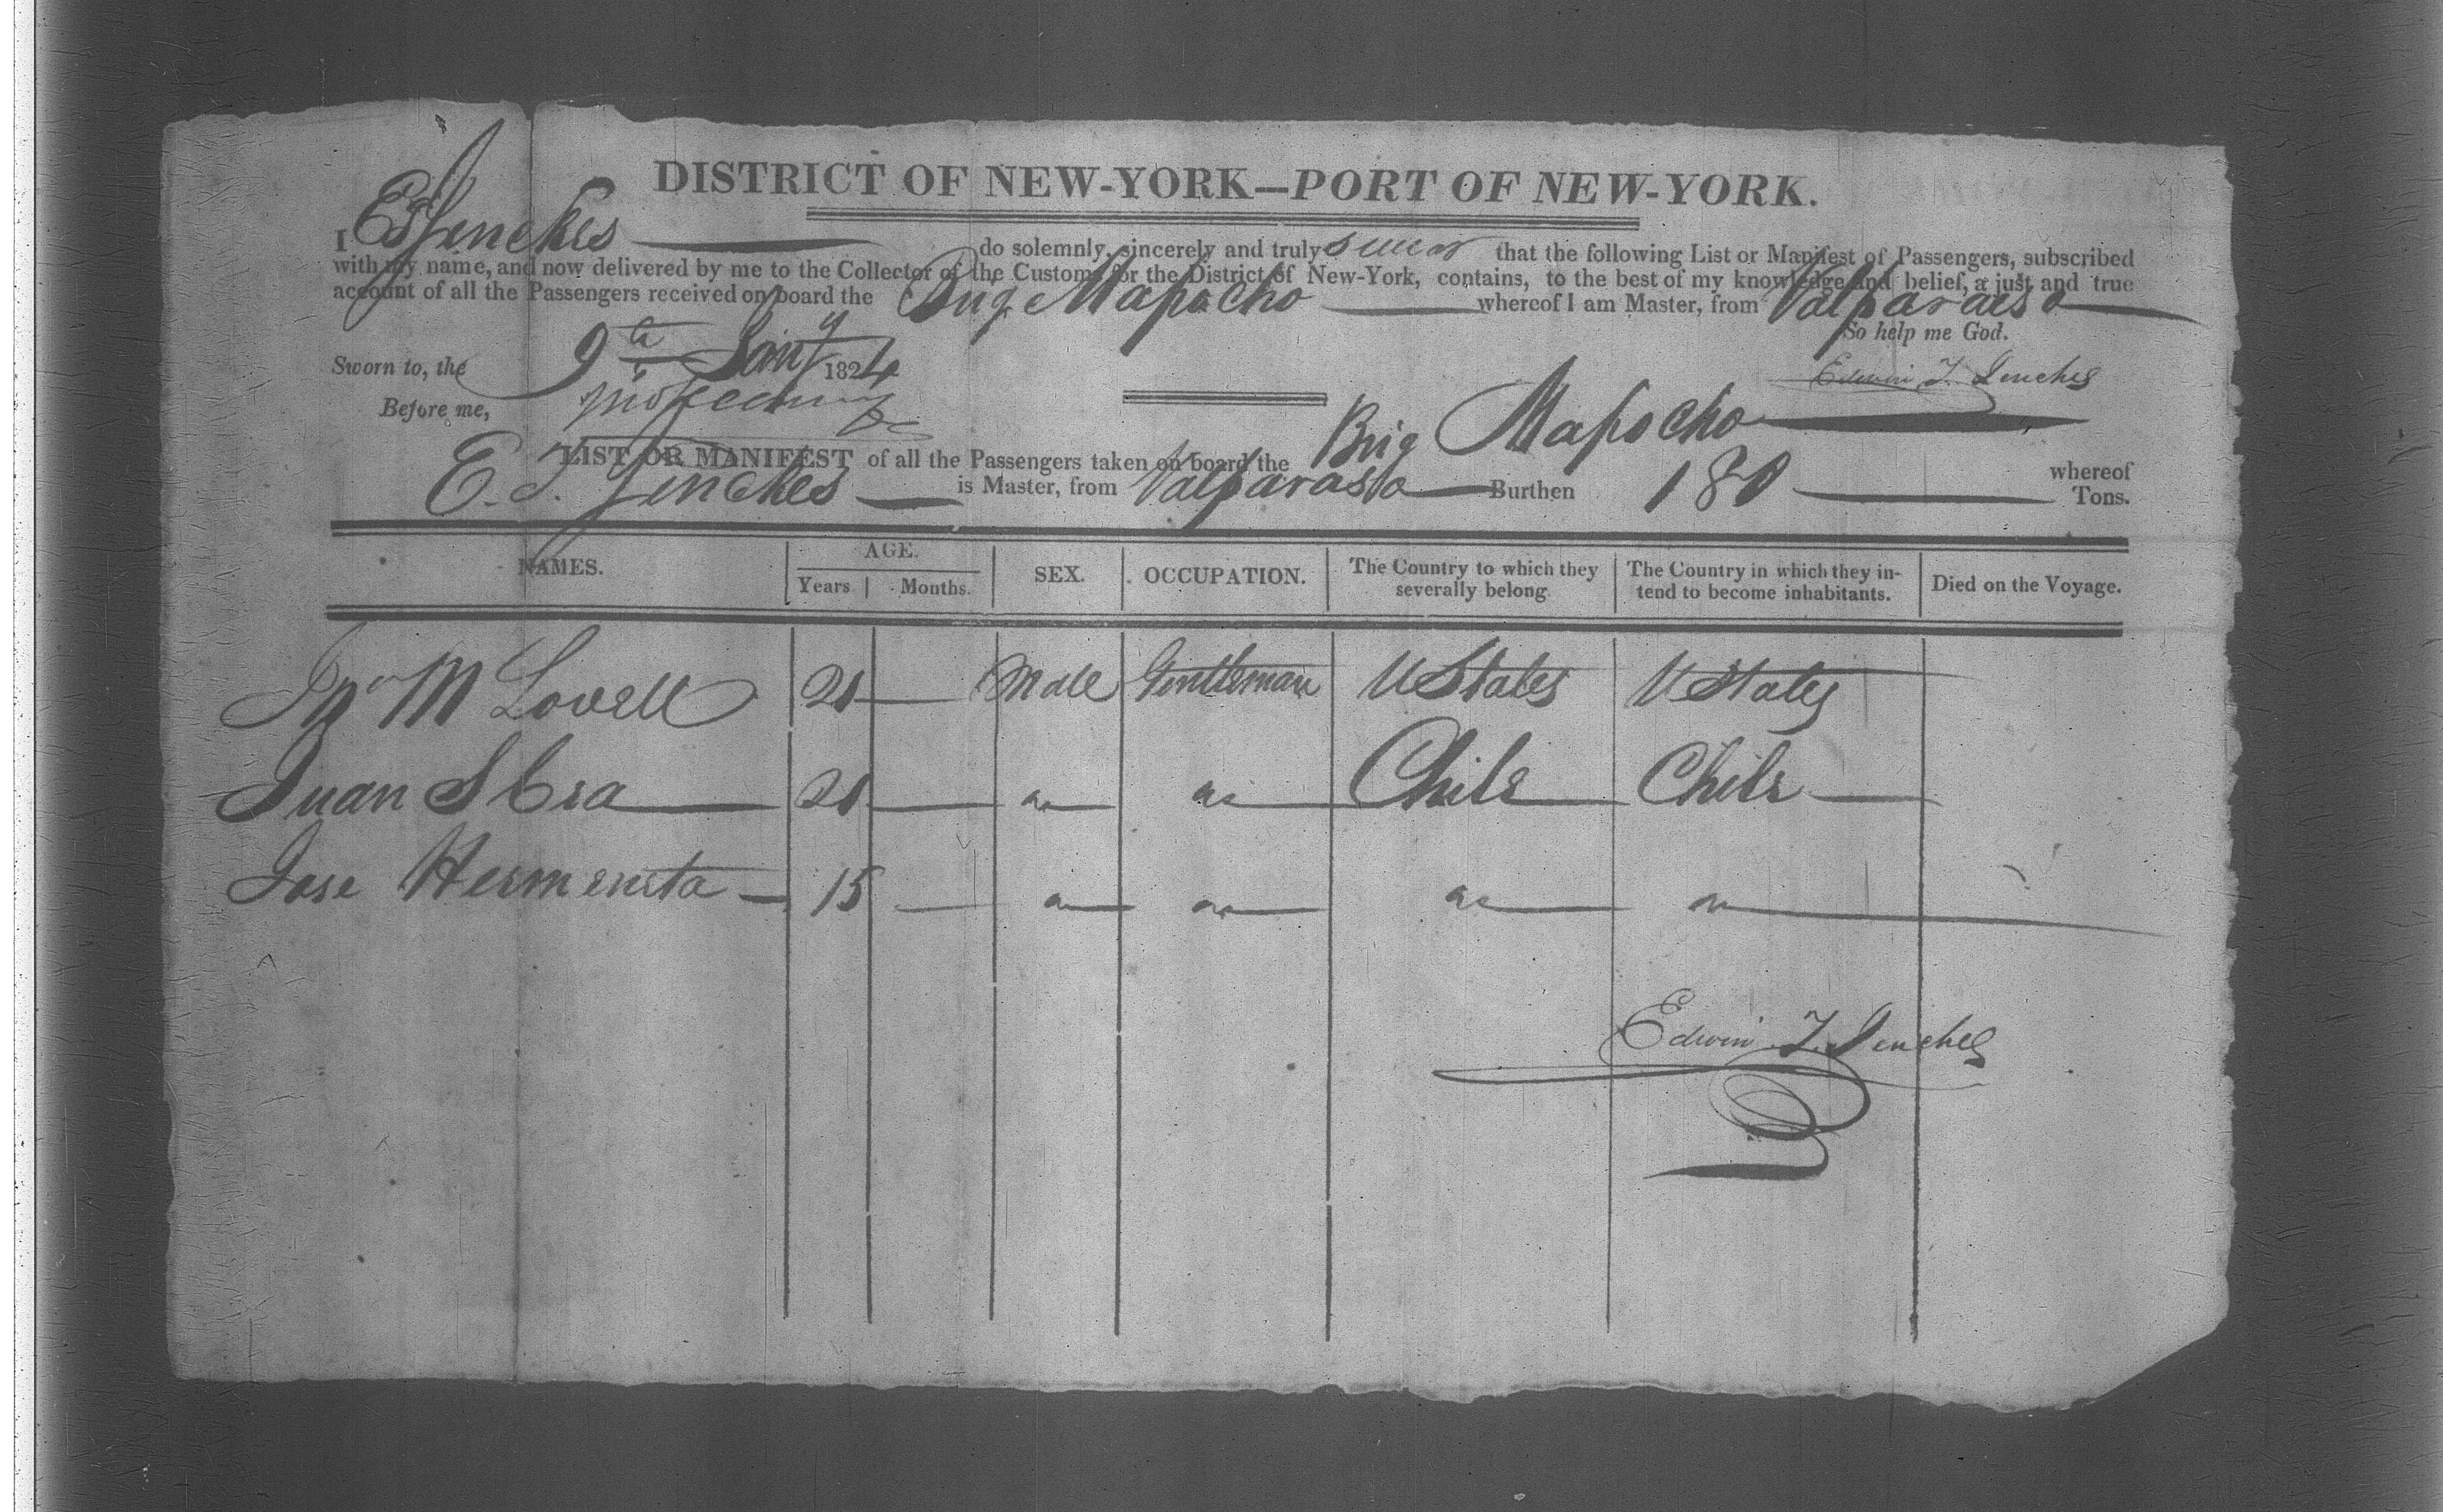 DISTRICT OF NEW-YORK—PORT OF NEW-YORK.
I E T Jenckes do solemnly, sincerely and truly swear that the following List or Manifest of Passengers, subscribed
with my name, and now delivered by me to the Collector of the Customs for the District of New-York, contains, to the best of my knowledge and belief, a just and true
account of all the Passengers received on board the Brig Mapocho whereof I am Master, from Valparaiso
So help me God.
Sworn to, the 9th Jany 1824
Edwin T. Jenckes
Before me,
Brig Mapocho
LIST OR MANIFEST of all the Passengers taken on board the whereof
E. T. Jenckes is Master, from Valparaiso Burthen 180 Tons.
NAMES. AGE. Years Months. SEX. OCCUPATION. The Country to which they severally belong The Country in which they intend to become inhabitants. Died on the Voyage.
Jno M Lovell 21 Male Gentleman U States U States
Juan 20 do do Chile Chile
Jose 15 do do do do
Edwin T. Jenckes